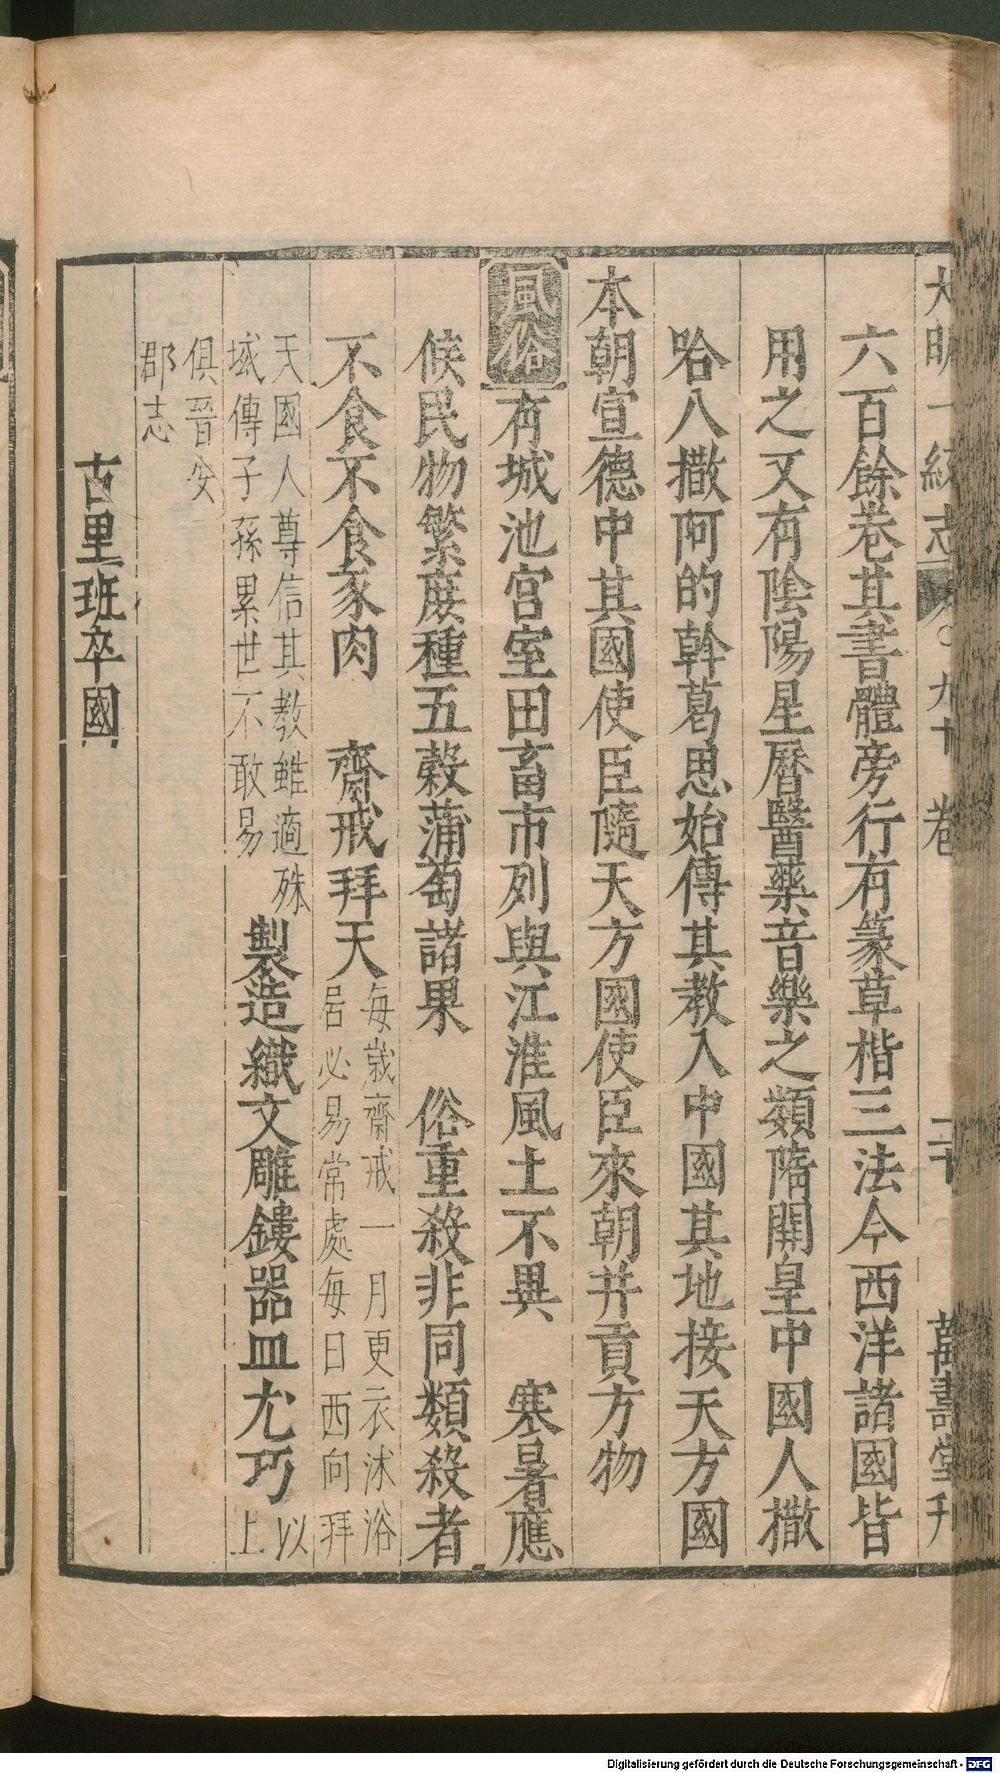 大明一統志 九十卷 二十 萬壽堂刋
六百餘卷其書體旁行有篆草楷三法今西洋諸國皆
用之又有陰陽星曆醫藥音樂之類隋開皇中國人撒
哈八撒阿的斡葛思始傳其教入中國其地接天方國
本朝宣德中其國使臣隨天方國使臣來朝并貢方物
風俗 有城池宮室田畜市列與江淮風土不異 寒暑應
候民物繁庶種五穀蒲萄諸果 俗重殺非同類殺者
不食不食豕肉 齋戒拜天 每歲齋戒一月更衣沐浴
居必易常處每日西向拜
天國人尊信其教雖適殊
域傳子孫累世不敢易 製造織文雕鏤器皿尤巧 以
上
俱晉安
郡志
古里班卒國
Digitalisierung gefördert durch die Deutsche Forschungsgemeinschaft - DFG